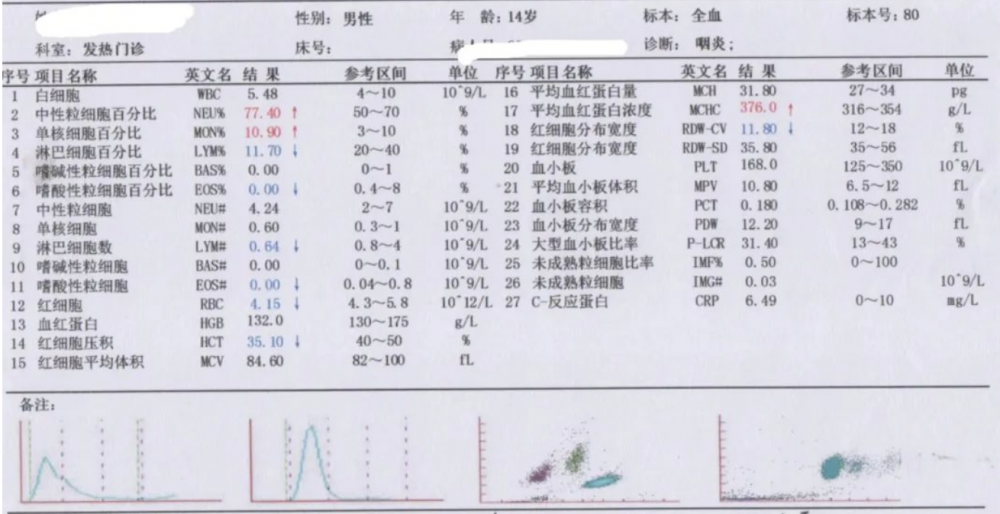 性别：男性 年 龄：14岁 标本：全血 标本号：80
科室：发热门诊 床号： 诊断：咽炎；
序号 项目名称 英文名 结 果 参考区间 单位 序号 项目名称 英文名 结 果 参考区间 单位
1 白细胞 WBC 5.48 4～10 10^9/L 16 平均血红蛋白量 MCH 31.80 27～34 pg
2 中性粒细胞百分比 NEU% 77.40 ↑ 50～70 % 17 平均血红蛋白浓度 MCHC 376.0 ↑ 316～354 g/L
3 单核细胞百分比 MON% 10.90 ↑ 3～10 % 18 红细胞分布宽度 RDW-CV 11.80 ↓ 12～18 %
4 淋巴细胞百分比 LYM% 11.70 ↓ 20～40 % 19 红细胞分布宽度 RDW-SD 35.80 35～56 fL
5 嗜碱性粒细胞百分比 BAS% 0.00 0～1 % 20 血小板 PLT 168.0 125～350 10^9/L
6 嗜酸性粒细胞百分比 EOS% 0.00 ↓ 0.4～8 % 21 平均血小板体积 MPV 10.80 6.5～12 fL
7 中性粒细胞 NEU# 4.24 2～7 10^9/L 22 血小板容积 PCT 0.180 0.108～0.282 %
8 单核细胞 MON# 0.60 0.3～1 10^9/L 23 血小板分布宽度 PDW 12.20 9～17 fL
9 淋巴细胞数 LYM# 0.64 ↓ 0.8～4 10^9/L 24 大型血小板比率 P-LCR 31.40 13～43 %
10 嗜碱性粒细胞 BAS# 0.00 0～0.1 10^9/L 25 未成熟粒细胞比率 IMF% 0.50 0～100
11 嗜酸性粒细胞 EOS# 0.00 ↓ 0.04～0.8 10^9/L 26 未成熟粒细胞 IMG# 0.03 10^9/L
12 红细胞 RBC 4.15 ↓ 4.3～5.8 10^12/L 27 C-反应蛋白 CRP 6.49 0～10 mg/L
13 血红蛋白 HGB 132.0 130～175 g/L
14 红细胞压积 HCT 35.10 ↓ 40～50 %
15 红细胞平均体积 MCV 84.60 82～100 fL
备注：